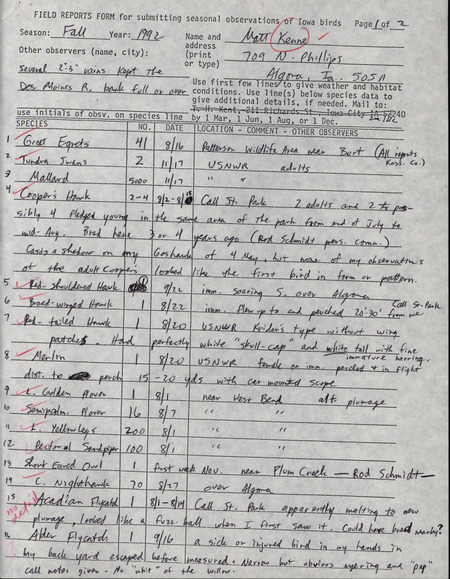 FIELD REPORTS FORM for submitting seasonal observations of Iowa birds Page 1 of 2
Season: Fall Year: 1992 Name and Matt Kenne
Other observers (name, city): address (print or type) 709 N. Phillips
Algona, Ia. 50511
several 2"-3" rains kept the
Des Moines R. bank full or over
Use first few lines to give weather and habitat
conditions. Use line(s) below species data to
give additional details, if needed. Mail to:
T. H. Kent, 211 Richards St., Iowa City IA 52240
use initials of obsv. on species line by 1 Mar, 1 Jun, 1 Aug, or 1 Dec.
SPECIES NO. DATE LOCATION - COMMENT - OTHER OBSERVERS
1 Great Egrets 41 8/16 Patterson Wildlife Area near Burt (All reports Koss. Co.)
2 Tundra Swans 2 11/17 USNWR adults
3 Mallard 5000 11/17 " "
4 Cooper's Hawk 2-4 8/2-8/15 Call St. Park 2 adults and 2 pos-
sibly 4 fledged young in the same area of the park from end of July to
mid-Aug. Bred here 3 or 4 years ago (Rod Schmidt pers. comm.)
Casts a shadow on my Goshawk of 4 May, but none of my observations
of the adult Cooper's looked like the first bird in form or pattern.
5 Red-shouldered Hawk 1 9/22 imm. soaring S. over Algona
6 Broad-winged Hawk 1 8/22 imm. Flew up to and perched 20'-30' from me Call St. Park
7 Red-tailed Hawk 1 8/20 USNWR Krider's type without wing
patches. Had perfectly white "skull-cap" and white tail with fine
immature barring.
8 Merlin 1 8/20 USNWR female or imm. perched & in flight
dist. to perch 15-20 yds with car-mounted scope
9 L. Golden Plover 1 8/1 near West Bend alt. plumage
10 Semipalm. Plover 16 8/7 " "
11 L. Yellowlegs 200 8/1 " "
12 Pectoral Sandpiper 100 8/1 " "
13 Short Eared Owl 1 first week Nov. near Plum Creek — Rod Schmidt —
14 C. Nighthawk 70 8/27 over Algona
15 Acadian Flycatch 1 8/1-8/14 Call St. Park apparently molting to new
plumage, looked like a fuzz ball when I first saw it. Could have bred nearby?
16 Alder Flycatch 1 9/16 a sick or injured bird in my hands in
my back yard escaped before measured. Narrow but obvious eyering and "pep"
call notes given. No "whit" of the willow.